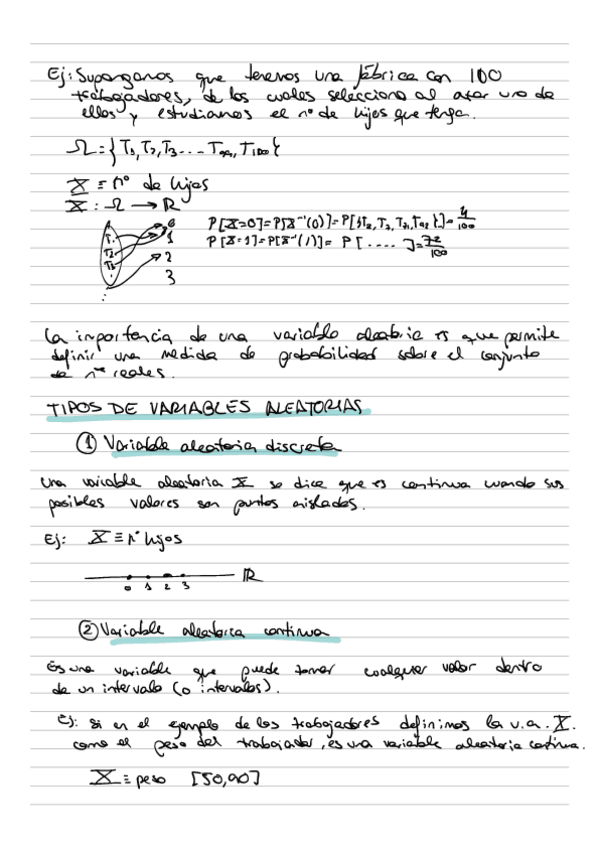 Ej: Supongamos que tenemos una fábrica con 100
trabajadores, de los cuales selecciono al azar uno de
ellos y estudiamos el nº de hijos que tenga.
Ω = {T₁, T₂, T₃ .... T₉₉, T₁₀₀}
X ≡ nº de hijos
X : Ω → ℝ
P[X=0] = P[X⁻¹(0)] =
P[X=1] = P[X⁻¹(1)] = P[....] =
T₁
T₂
T₃
0
1
2
3
La importancia de una variable aleatoria es que permite
definir una medida de probabilidad sobre el conjunto
de nºs reales.
TIPOS DE VARIABLES ALEATORIAS
① Variable aleatoria discreta
Una variable aleatoria X se dice que es continua cuando sus
posibles valores son puntos aislados.
Ej: X ≡ nº hijos
ℝ
0 1 2 3
② Variable aleatoria continua
Es una variable que puede tomar cualquier valor dentro
de un intervalo (o intervalos).
Ej: Si en el ejemplo de los trabajadores definimos la v.a. X.
como el peso del trabajador, es una variable aleatoria continua.
X ≡ peso